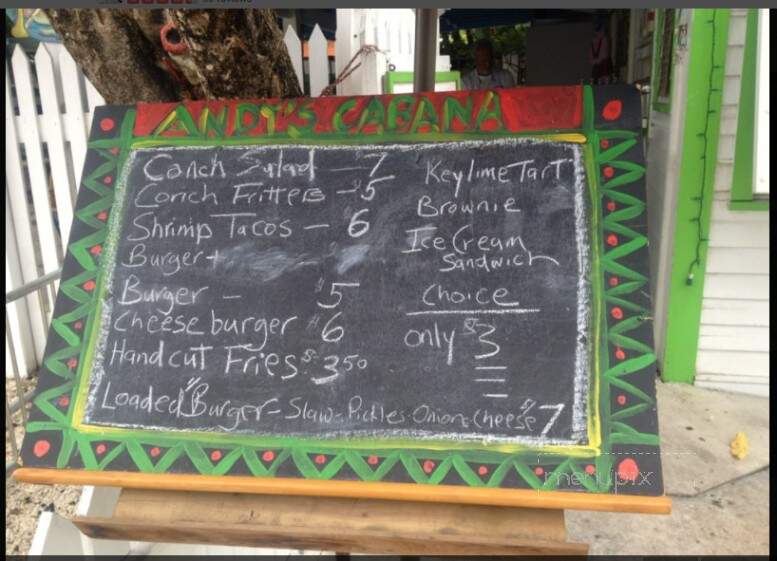 ANDY'S CABANA
Conch Salad - 7
Conch Fritters - $5
Shrimp Tacos - $6
Burger +
Burger - $5
Cheeseburger $6
Handcut Fries $3.50
Loaded "Burger - Slaw - Pickles - Onion - Cheese $7
Keylime Tart
Brownie
Ice Cream
Sandwich
Choice
only $3
menupix